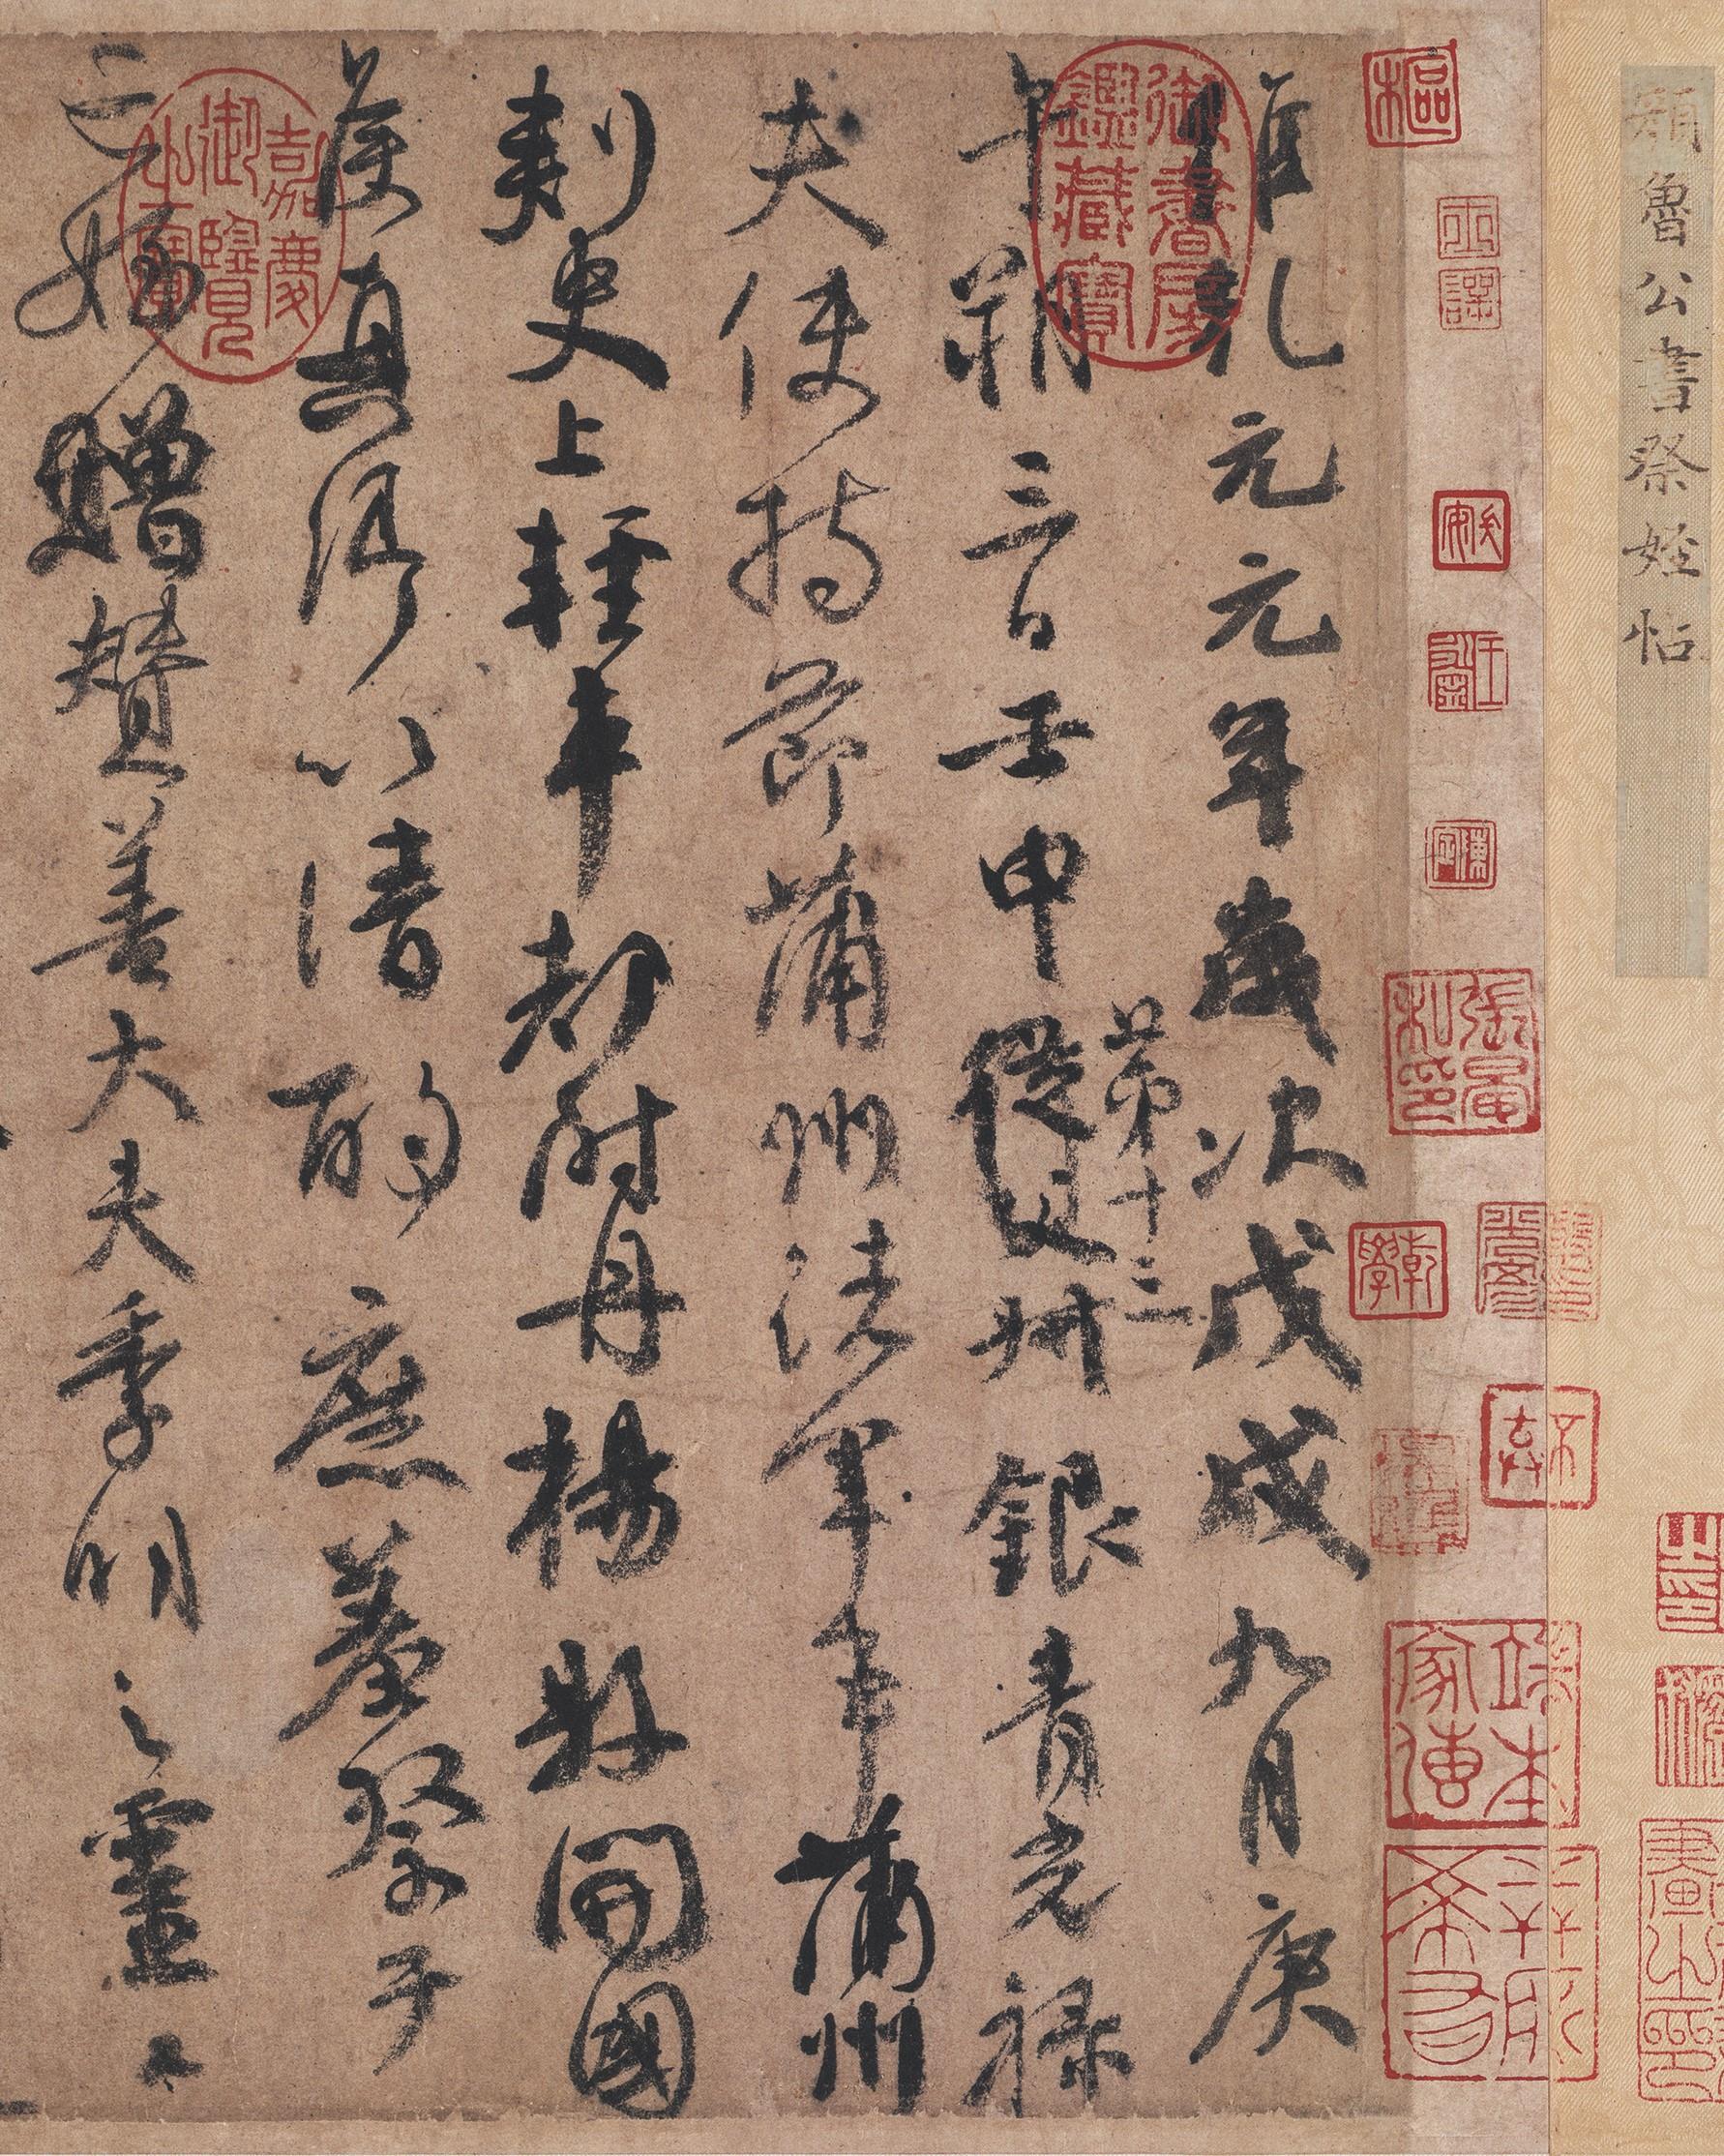 顏魯公書祭姪帖
維乾元元年歲次戊戌九月庚
午朔三日壬申第十三從父銀青光祿
夫使持節蒲州諸軍事蒲州
刺史上輕車都尉丹楊縣開國
侯真卿以清酌庶羞祭于
亡姪贈贊善大夫季明之靈
御書房鑑藏寶
嘉慶御覽之寶
樞
張晏私印
乾學